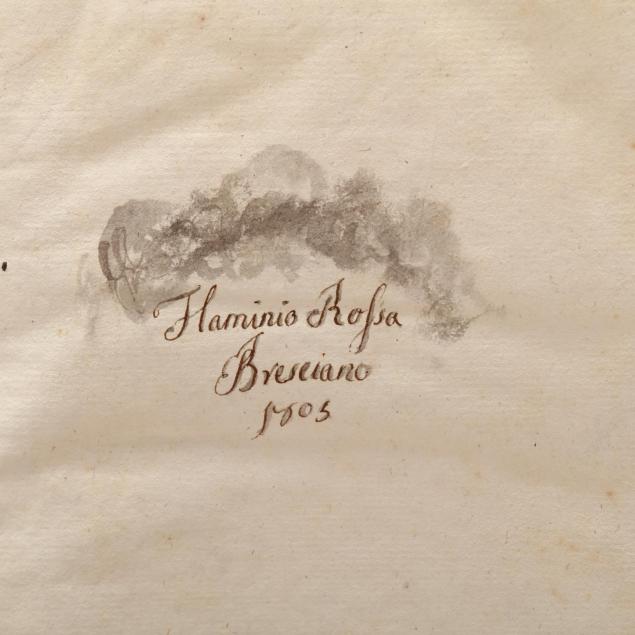 Flaminio Roſsa
Bresciano
1705